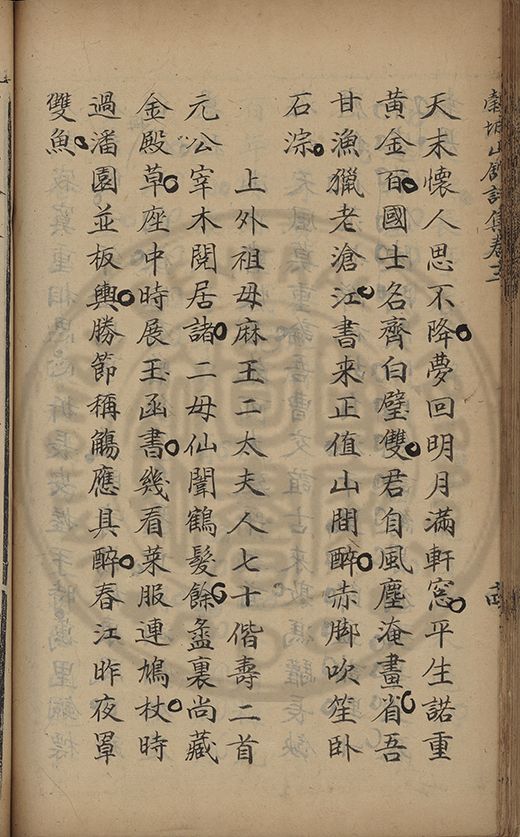 穀城山館詩集卷十二
天末懷人思不降夢回明月滿軒窓平生諾重
黃金百國士名齊白璧雙君自風塵淹畫省吾
甘漁獵老滄江書来正值山間醉赤脚吹笙臥
石淙
上外祖母麻王二太夫人七十偕壽二首
元公宰木閱居諸二母仙闈鶴髮餘盝裏尚藏
金殿草座中時展玉函書幾看菜服連鳩杖時
過潘園並板輿勝節稱觴應具醉春江昨夜罩
雙魚